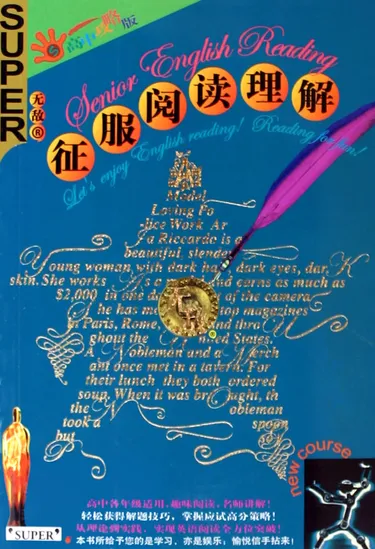 SUPER
无敌®
高中攻略版
Senior English Reading
征服阅读理解
Let's enjoy English reading! Reading for fun!
A
Model
Loving Fo
ice Work Ar
a Riccarde is a
beautiful, slender
Young woman with dark ha dark eyes, dar K
skin. She works As a and earns as much as
$2,000 in one da of the camera
he has mo top magazines
in Paris, Rome, and thru
ghout the United States.
A Nobleman and a Merch
ant once met in a tavern. For
their lunch they both ordered
soup. When it was brought, th
e nobleman
took a spoon
but
new course
高中各年级适用,趣味阅读,名师讲解!
轻松获得解题技巧,掌握应试高分策略!
从理论到实践,实现英语阅读全方位突破!
本书所给予您的是学习,亦是娱乐,愉悦信手拈来!
"SUPER"